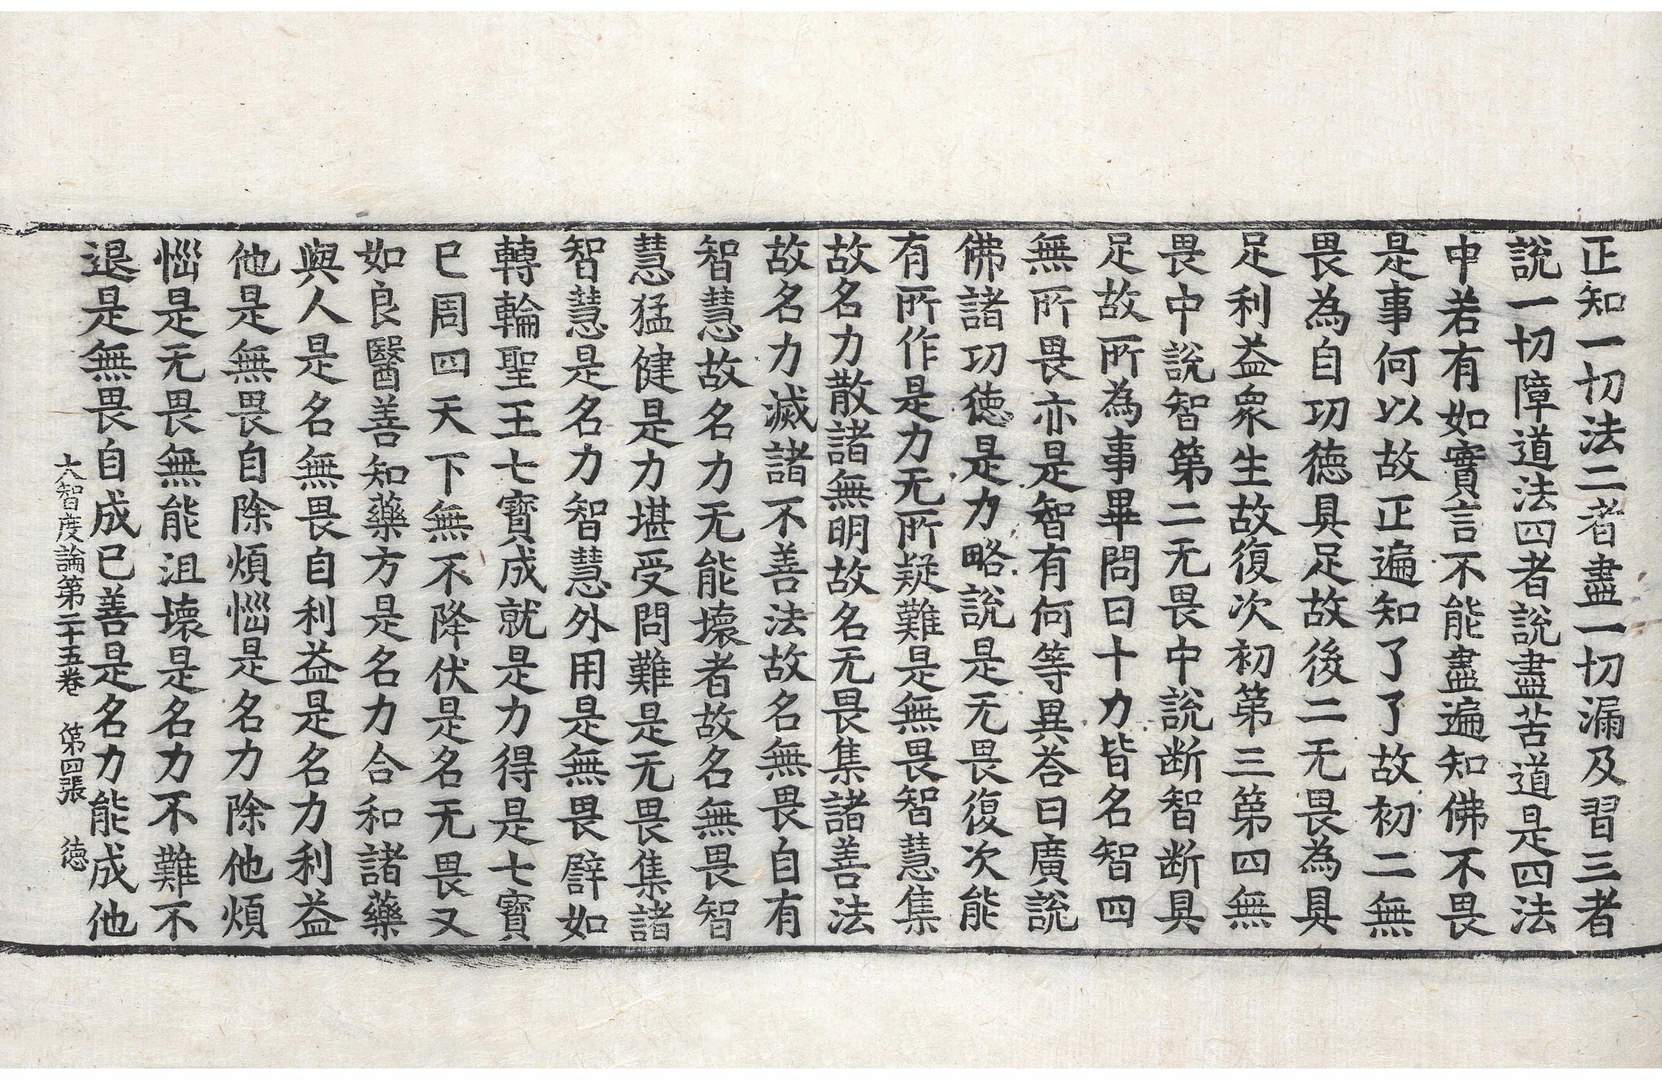 正知一切法二者盡一切漏及習三者
說一切障道法四者說盡苦道是四法
中若有如實言不能盡遍知佛不畏
是事何以故正遍知了了故初二無
畏為自功德具足故後二无畏為具
足利益衆生故復次初第三第四無
畏中說智第二无畏中說断智断具
足故所為事畢問曰十力皆名智四
無所畏亦是智有何等異荅曰廣說
佛諸功德是力略說是无畏復次能
有所作是力无所疑難是無畏智慧集
故名力散諸無明故名无畏集諸善法
故名力滅諸不善法故名無畏自有
智慧故名力无能壞者故名無畏智
慧猛健是力堪受問難是无畏集諸
智慧是名力智慧外用是無畏譬如
轉輪聖王七寶成就是力得是七寶
已周四天下無不降伏是名无畏又
如良醫善知藥方是名力合和諸藥
與人是名無畏自利益是名力利益
他是無畏自除煩惱是名力除他煩
惱是无畏無能沮壞是名力不難不
退是無畏自成已善是名力能成他
大智度論第二十五卷　第四張　德